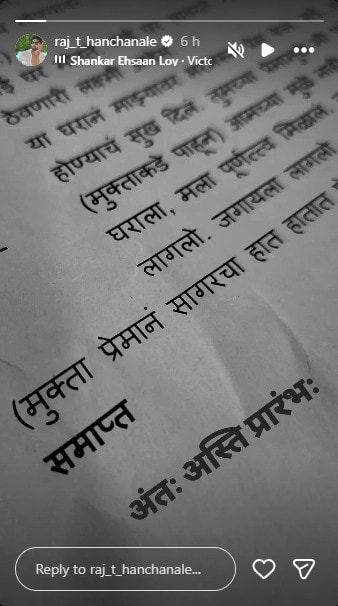 raj_t_hanchanale 6 h
Shankar Ehsaan Loy · Victo
ठेवणारी लक्ष्मी
या घरानं माझ्यावर
होण्याचं सुख दिलं. तुमच्या
(मुक्ताकडे पाहून) आमच्या मुळे
घराला, मला पूर्णत्त्व मिळालं.
लागलो. जगायला लागलो
(मुक्ता प्रेमानं सागरचा हात हातात
समाप्त
अंतः अस्ति प्रारंभः
Reply to raj_t_hanchanale...